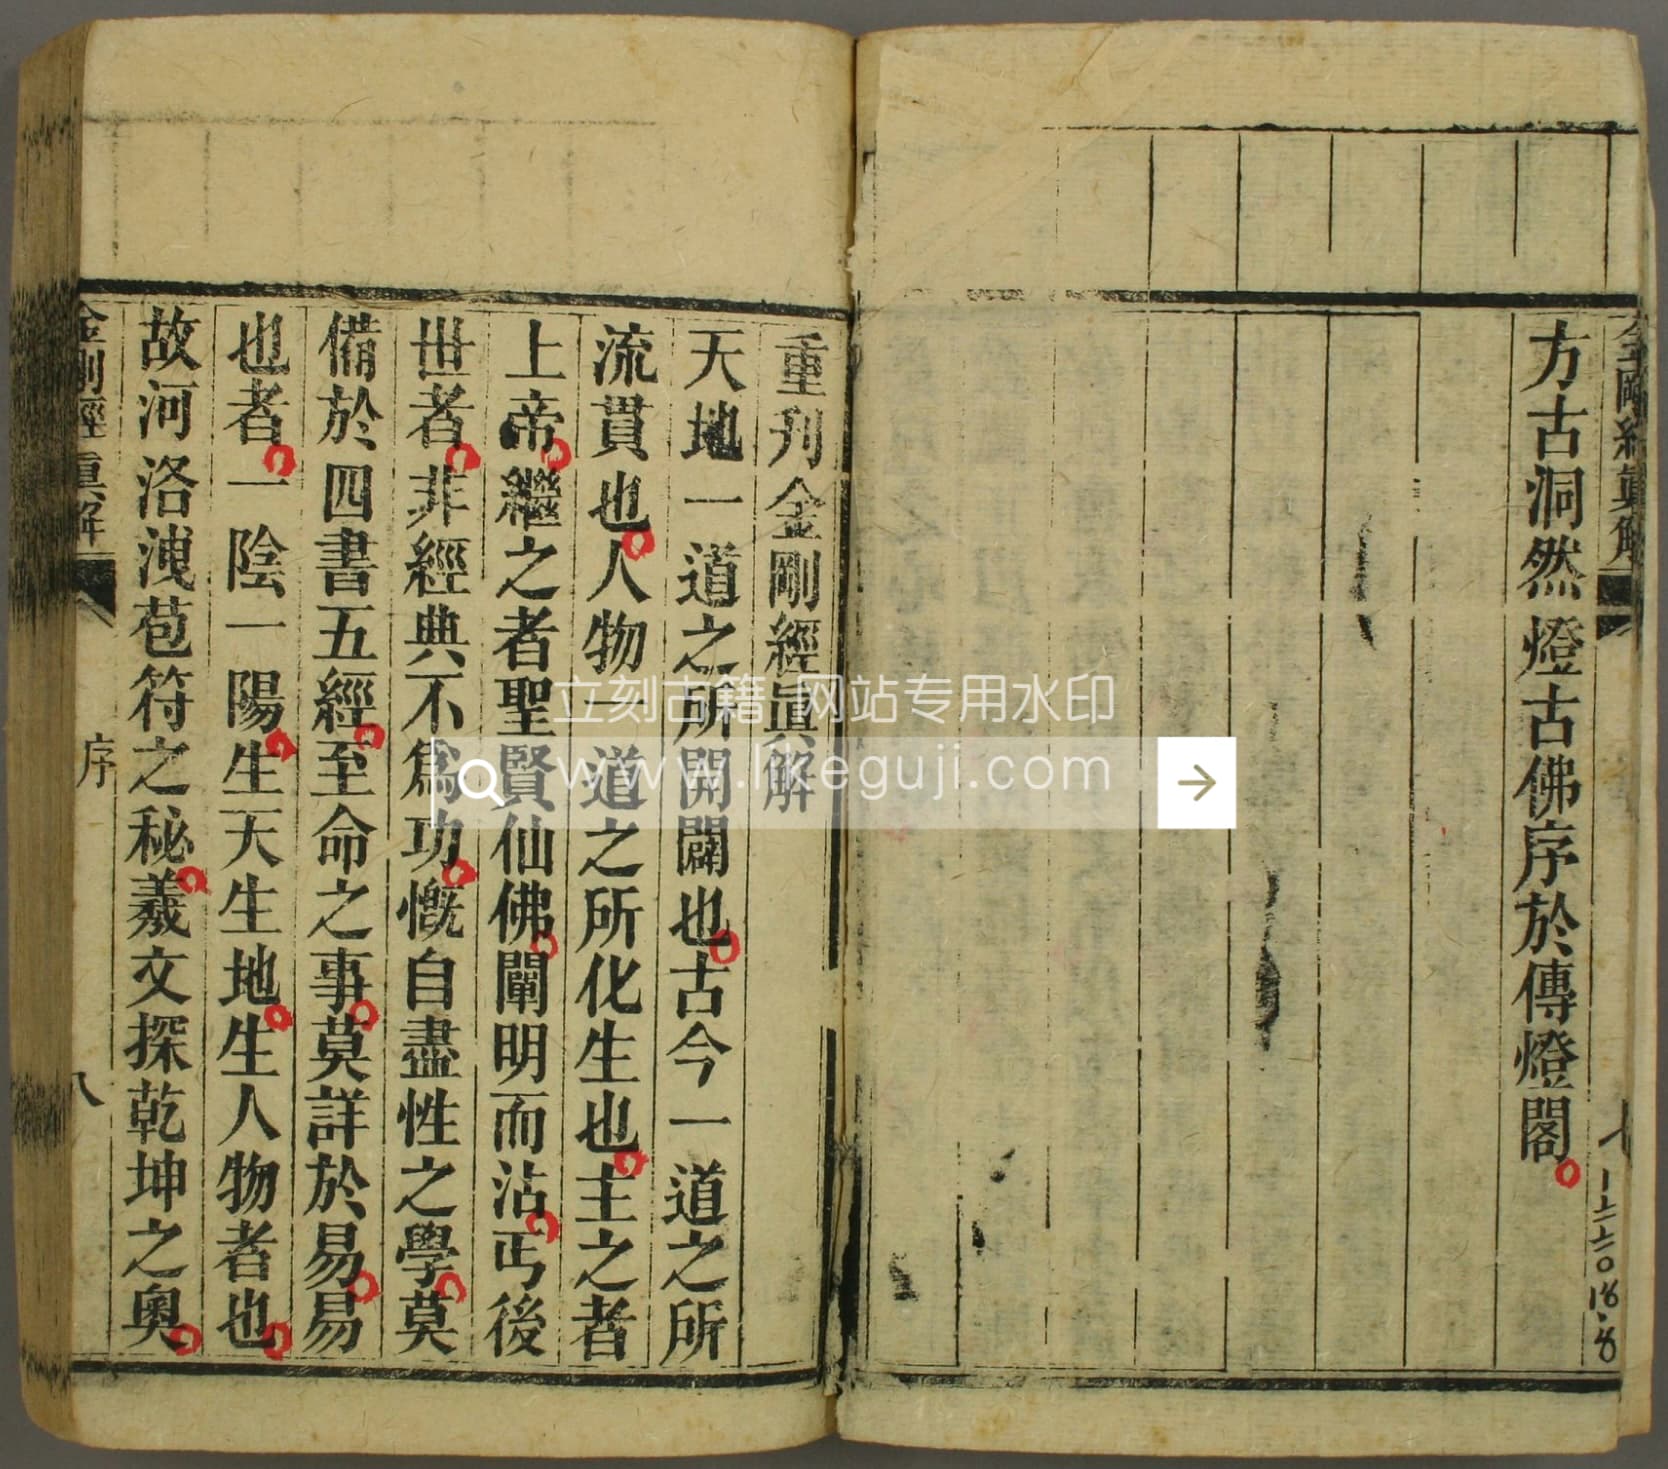 金剛經真解
方古洞然燈古佛序於傳燈閣
重刋金剛經眞解
天地一道之所開闢也古今一道之所
流貫也人物一道之所化生也主之者
上帝繼之者聖賢仙佛闡明而沾丐後
世者非經典不爲功慨自盡性之學莫
備於四書五經至命之事莫詳於易易
也者一陰一陽生天生地生人物者也
故河洛洩苞符之秘羲文探乾坤之奧
金剛經眞解
序
八
立刻古籍 网站专用水印
www.lkeguji.com